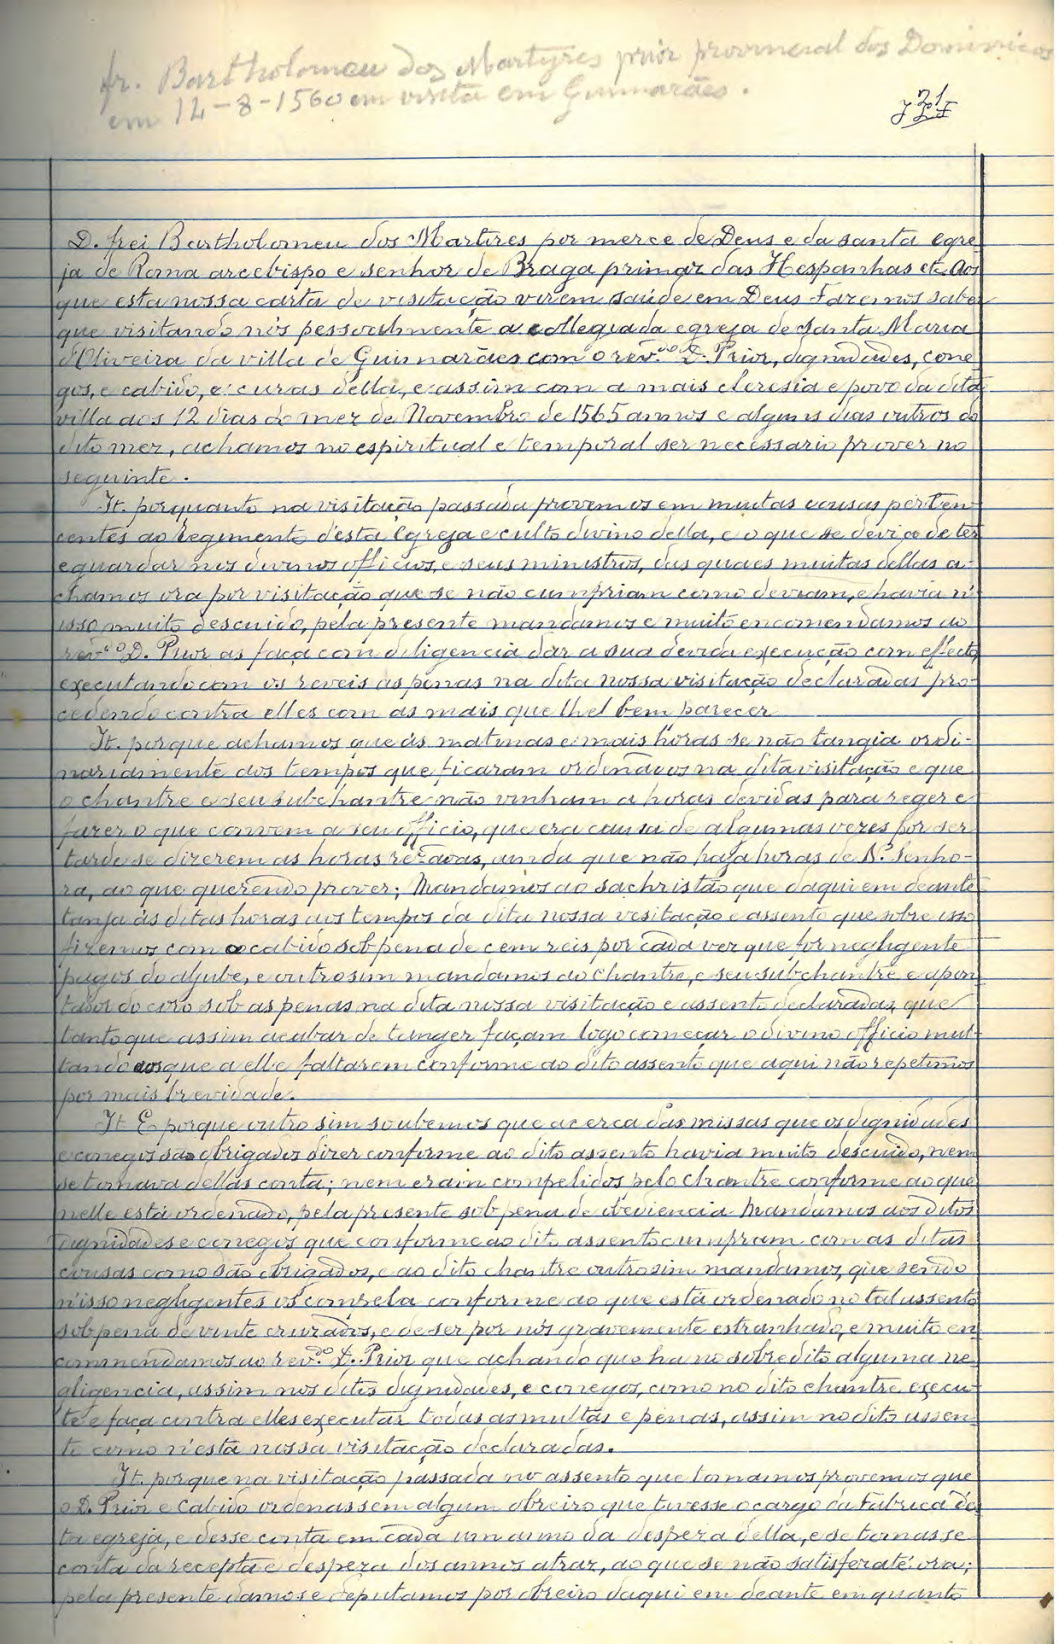 fr. Bartholomeu dos Martyres prior provincial dos Dominicos
em 12-8-1560 em visita em Guimarães.
D. frei Bartholomeu dos Martires por merce de Deus e da santa egre
ja de Roma arcebispo e senhor de Braga primaz das Hespanhas etc. Aos
que esta nossa carta de visitação virem saúde em Deus Fazemos saber
que visitando nós pessoalmente a collegiada egreja de Santa Maria
d'Oliveira da villa de Guimarães com o rev.do D. Prior, dignidades, cone
gos, e cabido, e curas della, e assim com a mais cleresia e povo da dita
villa aos 12 dias do mez de Novembro de 1565 annos e alguns dias outros do
dito mez, achamos no espiritual e temporal ser necessario prover no
seguinte.
It. porquanto na visitação passada provemos em muitas cousas perten
centes ao regimento d'esta Egreja e culto divino della, e o que se devia de ter
e guardar nos divinos officios, e seus ministros, das quaes muitas dellas a-
chamos ora por visitação que se não cumpriam como deviam, e havia n'
isso muito descuido, pela presente mandamos e muito encomendamos ao
rev.do D. Prior as faça com diligencia dar a sua devida execução com effecto,
executando com os reveis as penas na dita nossa visitação declaradas pro-
cedendo contra elles com as mais que lhe bem parecer
It. porque achamos que ás matinas e mais horas se não tangia ordi-
nariamente aos tempos que ficaram ordenados na dita visitação e que
o chantre e seu subchantre não vinham a horas devidas para reger e
fazer o que convem a seu officio, que era causa de algumas vezes por ser
tarde se dizerem as horas rezadas, ainda que não haja horas de N.ª Senho-
ra, ao que querendo prover; Mandamos ao sachristão que daqui em deante
tanja ás ditas horas aos tempos da dita nossa vesitação e assento que sobre isso
fizemos com o cabido sob pena de cem reis por cada vez que for negligente
pagos do aljube, e outrosim mandamos ao Chantre, e seu subchantre e apon
tador do coro sob as penas na dita nossa visitação e assento declaradas, que
tanto que assim acabar de tanger façam logo começar o divino officio mul-
tando aos que a elle faltarem conforme ao dito assento que aqui não repetimos
por mais brevidade.
It. E porque outro sim soubemos que acerca das missas que os dignidades
e conegos são obrigados dizer conforme ao dito assento havia muito descuido, nem
se tomava dellas conta; nem eram compelidos pelo Chantre conforme ao que
nelle está ordenado, pela presente sob pena de obediencia Mandamos aos ditos
dignidades e conegos que conforme ao dito assento cumpram com as ditas
cousas como são obrigados, e ao dito chantre outrosim mandamos, que sendo
n'isso negligentes os compela conforme ao que está ordenado no tal assento
sob pena de vinte cruzados, e de ser por nós gravemente estranhado, e muito en
commendamos ao rev.do D. Prior que achando que ha no sobredito alguma ne
gligencia, assim nos ditos dignidades, e conegos, como no dito chantre execu
te e faça contra elles executar todas as multas e penas, assim no dito assen
to como n'esta nossa visitação declaradas.
It. porque na visitação passada no assento que tomamos provemos que
o D. Prior e Cabido ordenassem algum obreiro que tivesse o cargo da Fabrica des
ta egreja, e desse conta em cada um anno da despeza della, e se tomasse
conta da recepta e despeza dos annos atraz, ao que se não satisfez até ora;
pela presente damos e deputamos por obreiro daqui em deante emquanto